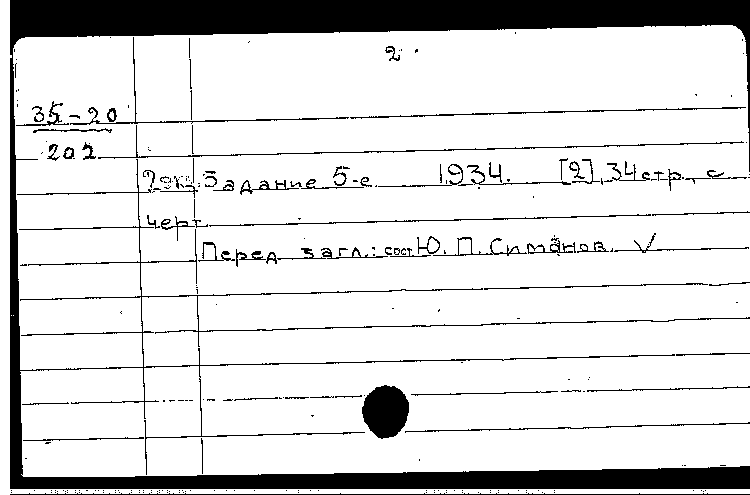 2.
35-20
202
2экз. Задание 5-е 1934. [2], 34 стр., с
черт.
Перед загл.: сост. Ю. П. Симанов. √